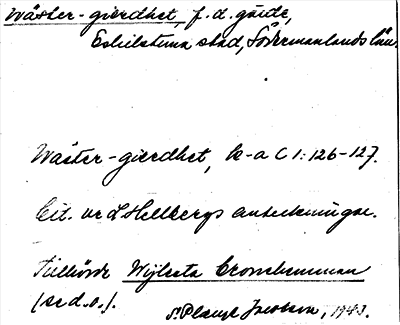 Wäster-gierdhet, f. d. gärde,
Eskilstuna stad, Södermanlands län.
Wäster-gierdhet, k-a C 1: 126-127.
Cit. ur L Hellbergs anteckningar.
Tillhörde Wijlsta
(se d. o.). Jacobson, 1943.